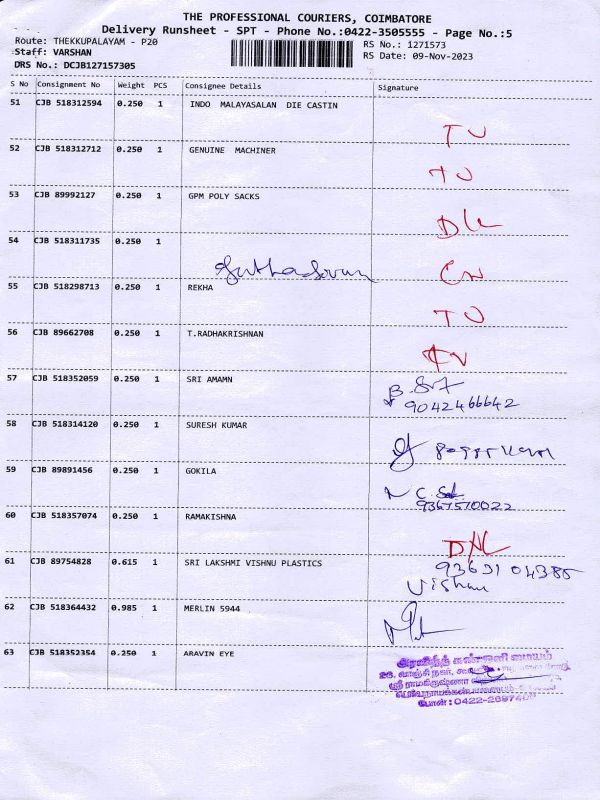 THE PROFESSIONAL COURIERS, COIMBATORE
Delivery Runsheet - SPT - Phone No.:0422-3505555 - Page No.:5
Route: THEKKUPALAYAM - P20
RS No.: 1271573
Staff: VARSHAN
RS Date: 09-Nov-2023
DRS No.: DCJB127157305
S No Consignment No Weight PCS Consignee Details Signature
51 CJB 518312594 0.250 1 INDO MALAYASALAN DIE CASTIN
TU
52 CJB 518312712 0.250 1 GENUINE MACHINER
TU
53 CJB 89992127 0.250 1 GPM POLY SACKS
54 CJB 518311735 0.250 1
55 CJB 518298713 0.250 1 REKHA
TU
56 CJB 89662708 0.250 1 T.RADHAKRISHNAN
57 CJB 518352059 0.250 1 SRI AMAMN
9042466642
58 CJB 518314120 0.250 1 SURESH KUMAR
59 CJB 89891456 0.250 1 GOKILA
9367570022
60 CJB 518357074 0.250 1 RAMAKISHNA
61 CJB 89754828 0.615 1 SRI LAKSHMI VISHNU PLASTICS
93631 04385
62 CJB 518364432 0.985 1 MERLIN 5944
63 CJB 518352354 0.250 1 ARAVIN EYE
அரவிந்த் கண்மணி மையம்
ஸ்ரீ ராமகிருஷ்ணா
போன்: 0422-